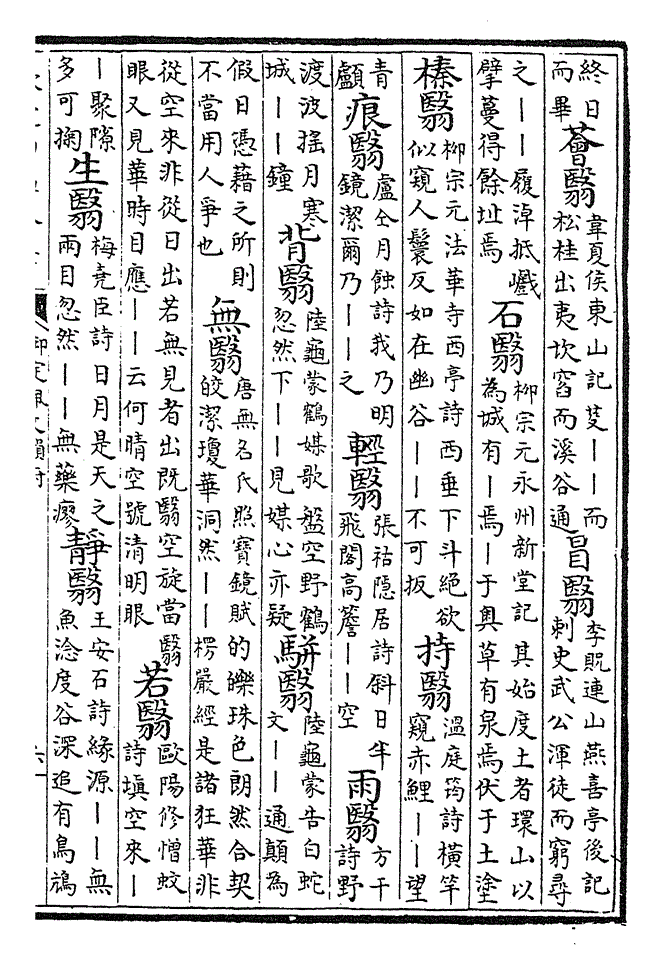 終日
而畢
薈翳
韋夏侯東山記芟――而
松桂出夷坎窞而溪谷通
冒翳
李貺連山燕喜亭後記
刺史武公渾徒而窮尋
之――履淖抵巇
擘蔓得餘址焉
石翳
柳宗元永州新堂記其始度土者環山以
為城有―焉―于奧草有泉焉伏于土塗
榛翳
柳宗元法華寺西亭詩西垂下斗絕欲
似窺人鬟反如在幽谷――不可扳
持翳
溫庭筠詩橫竿
窺赤鯉――望
青
顱
痕翳
盧仝月蝕詩我乃明
鏡潔爾乃――之
輕翳
張祜隱居詩斜日半
飛閣高簷――空
雨翳
方干
詩野
渡波搖月寒
城――鐘
背翳
陸龜蒙鶴媒歌盤空野鶴
忽然下――見媒心亦疑
駢翳
陸龜蒙告白蛇
文――通顛為
假日憑藉之所則
不當用人爭也
無翳
唐無名氏照寶鏡賦的皪珠色朗然合契
皎潔瓊華洞然――楞嚴經是諸狂華非
從空來非從日出若無見者出既翳空旋當翳
眼又見華時目應――云何晴空號清明眼
若翳
歐陽修憎蚊
詩塡空來―
―聚隙
多可掬
生翳
梅堯臣詩日月是天之
兩目忽然――無藥瘳
靜翳
王安石詩緣源――無
魚淰度谷深追有鳥鴻